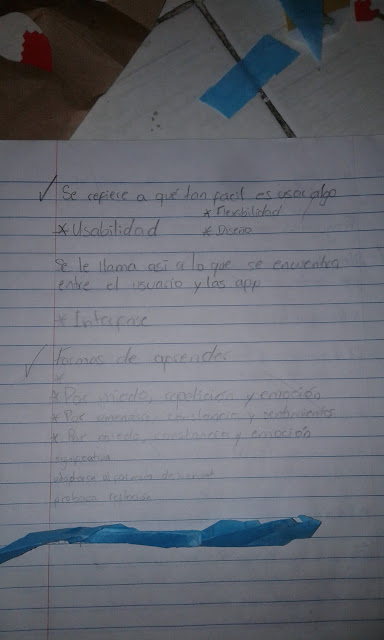 ✓ Se refiere a qué tan facil es usar algo
* Usabilidad * Flexibilidad
* Diseño
Se le llama asi a lo que se encuentra
entre el usuario y las app
* Interfase
✓ Formas de aprender
*
* Por miedo, repetición y emoción
* Por amenaza, constancia y sentimientos
* Por miedo, constancia y emoción